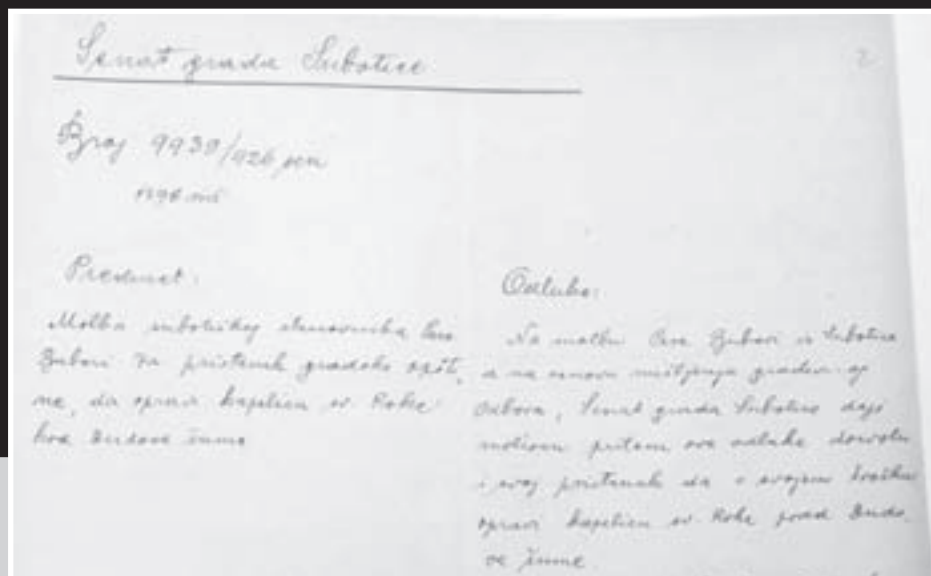 Senat grada Subotice
2
Broj 9939/926 sen
Predmet:
Molba subotičkog stanovnika
za pristanak gradske opšti-
ne, da opravi kapelicu sv. Roke
kod Dudove šume
Odluka:
Na molbu iz Subotice
a na osnovu mišljenja
odbora, Senat grada Subotice daje
ove odluke dozvolu
i svoj pristanak da o svojem trošku
opravi kapelicu sv. Roke pored Dudo-
ve šume